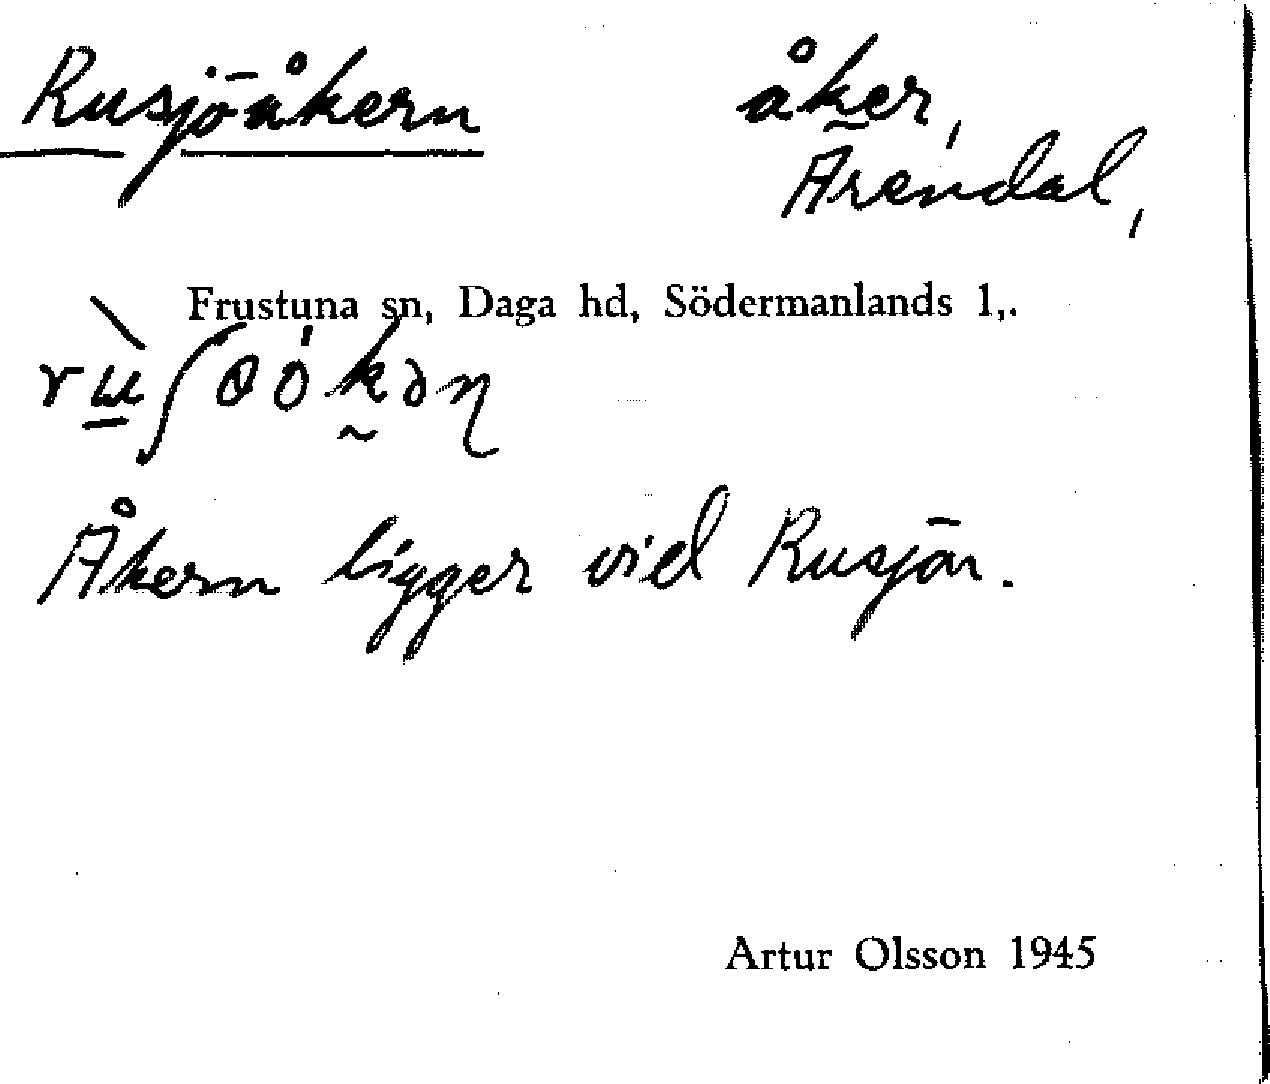 Rusjöåkern åker,
Arendal,
Frustuna sn, Daga hd, Södermanlands l,.
Åkern ligger vid Rusjön.
Artur Olsson 1945